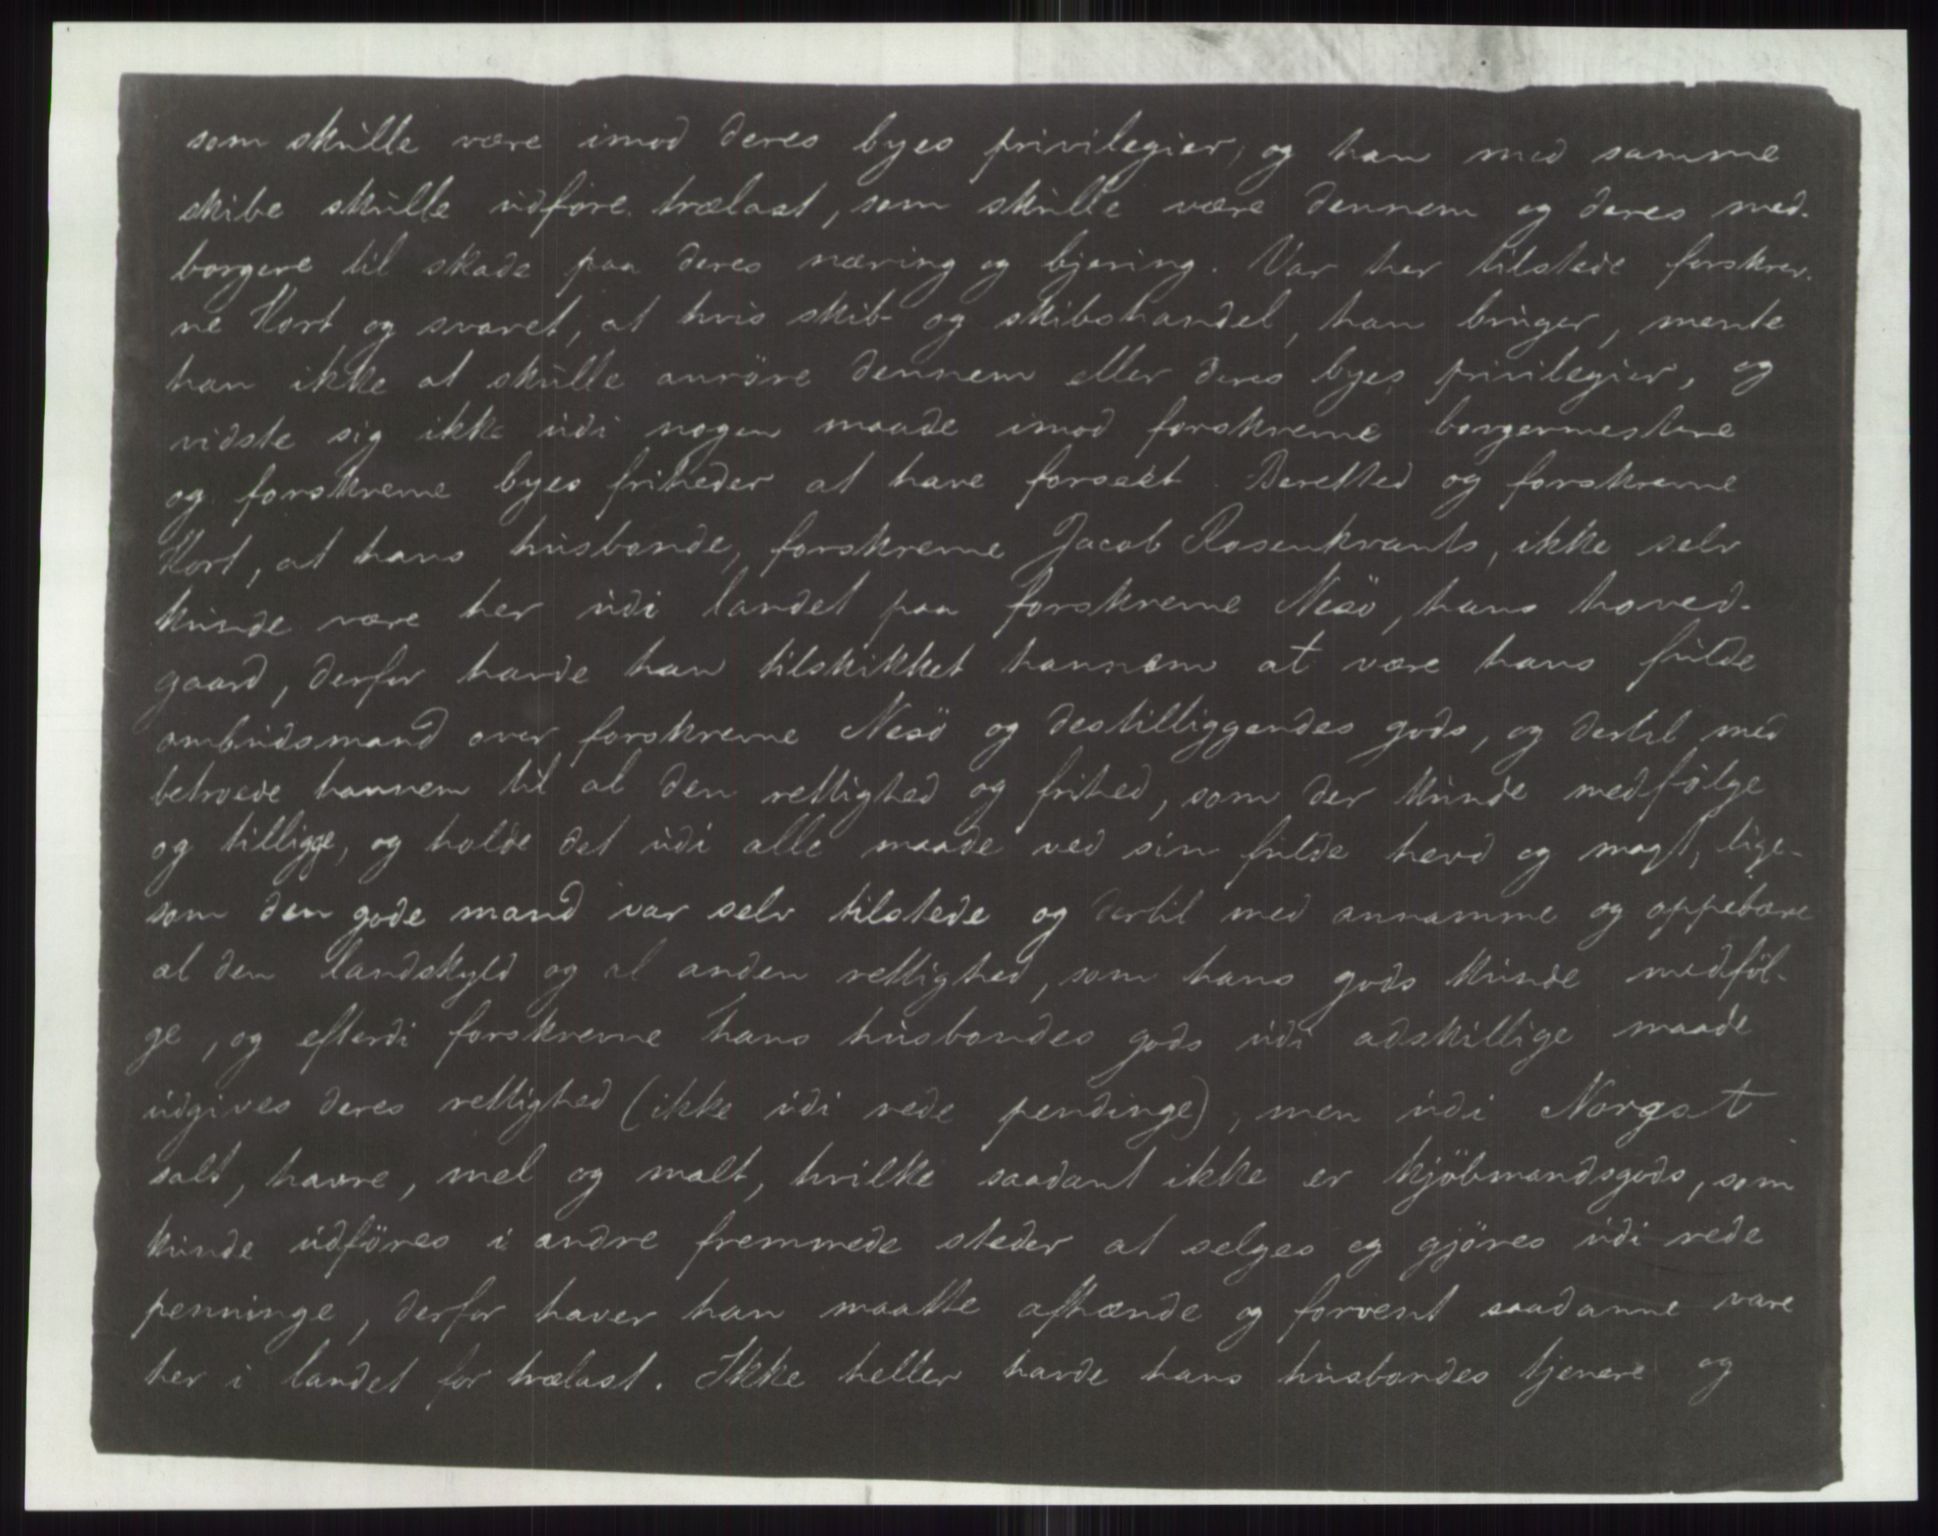 som skulle være imod deres byes privilegier, og han med samme
skibe skulle udføre trælast, som skulle være dennem og deres med-
borgere til skade paa deres næring og bjering. Var her tilstede forskrev-
ne Kort og svaret, at hvis skib- og skibshandel, han bruger, mente
han ikke at skulle anrøre dennem eller deres byes privilegier, og
vidste sig ikke udi nogen maade imod forskrevne borgermestere
og forskrevne byes friheder at have forseet. Beretted og forskrevne
Kort, at hans husbonde, forskrevne Jacob Rosenkrants, ikke selv
kunde være her udi landet paa forskrevne Nesö, hans hoved-
gaard, derfor havde han tilskikket hannem at være hans fulde
ombudsmand over forskrevne Nesö og destilliggendes gods, og dertil med
betroede hannem til al den rettighed og frihed, som der kunde medfølge
og tilligge, og holde det udi alle maade ved sin fulde hevd og magt, lige-
som den gode mand var selv tilstede og dertil med annamme og oppebære
al den landskyld og al anden rettighed, som hans gods kunde medföl-
ge, og efterdi forskrevne hans husbondes gods udi adskillige maade
udgives deres rettighed (ikke udi rede pendinge), men udi Norgst
salt, havre, mel og malt, hvilke saadant ikke er kjöbmandsgods, som
kunde udföres i andre fremmede steder at selges og gjöres udi rede
penninge, derfor haver han maatte afhænde og forvent saadanne vare
her i landet for trælast. Ikke heller havde hans husbondes tjenere og